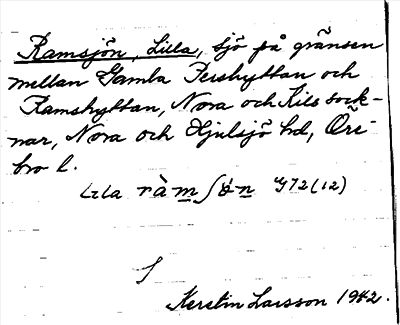 Ramsjön, Lilla, sjö på gränsen
mellan Gamla Pershyttan och
Ramshyttan, Nora och Kils sock-
nar, Nora och Hjulsjö hd, Öre-
bro l.
Lilla ràmʃön 972(12)
Kerstin Larsson 1942.